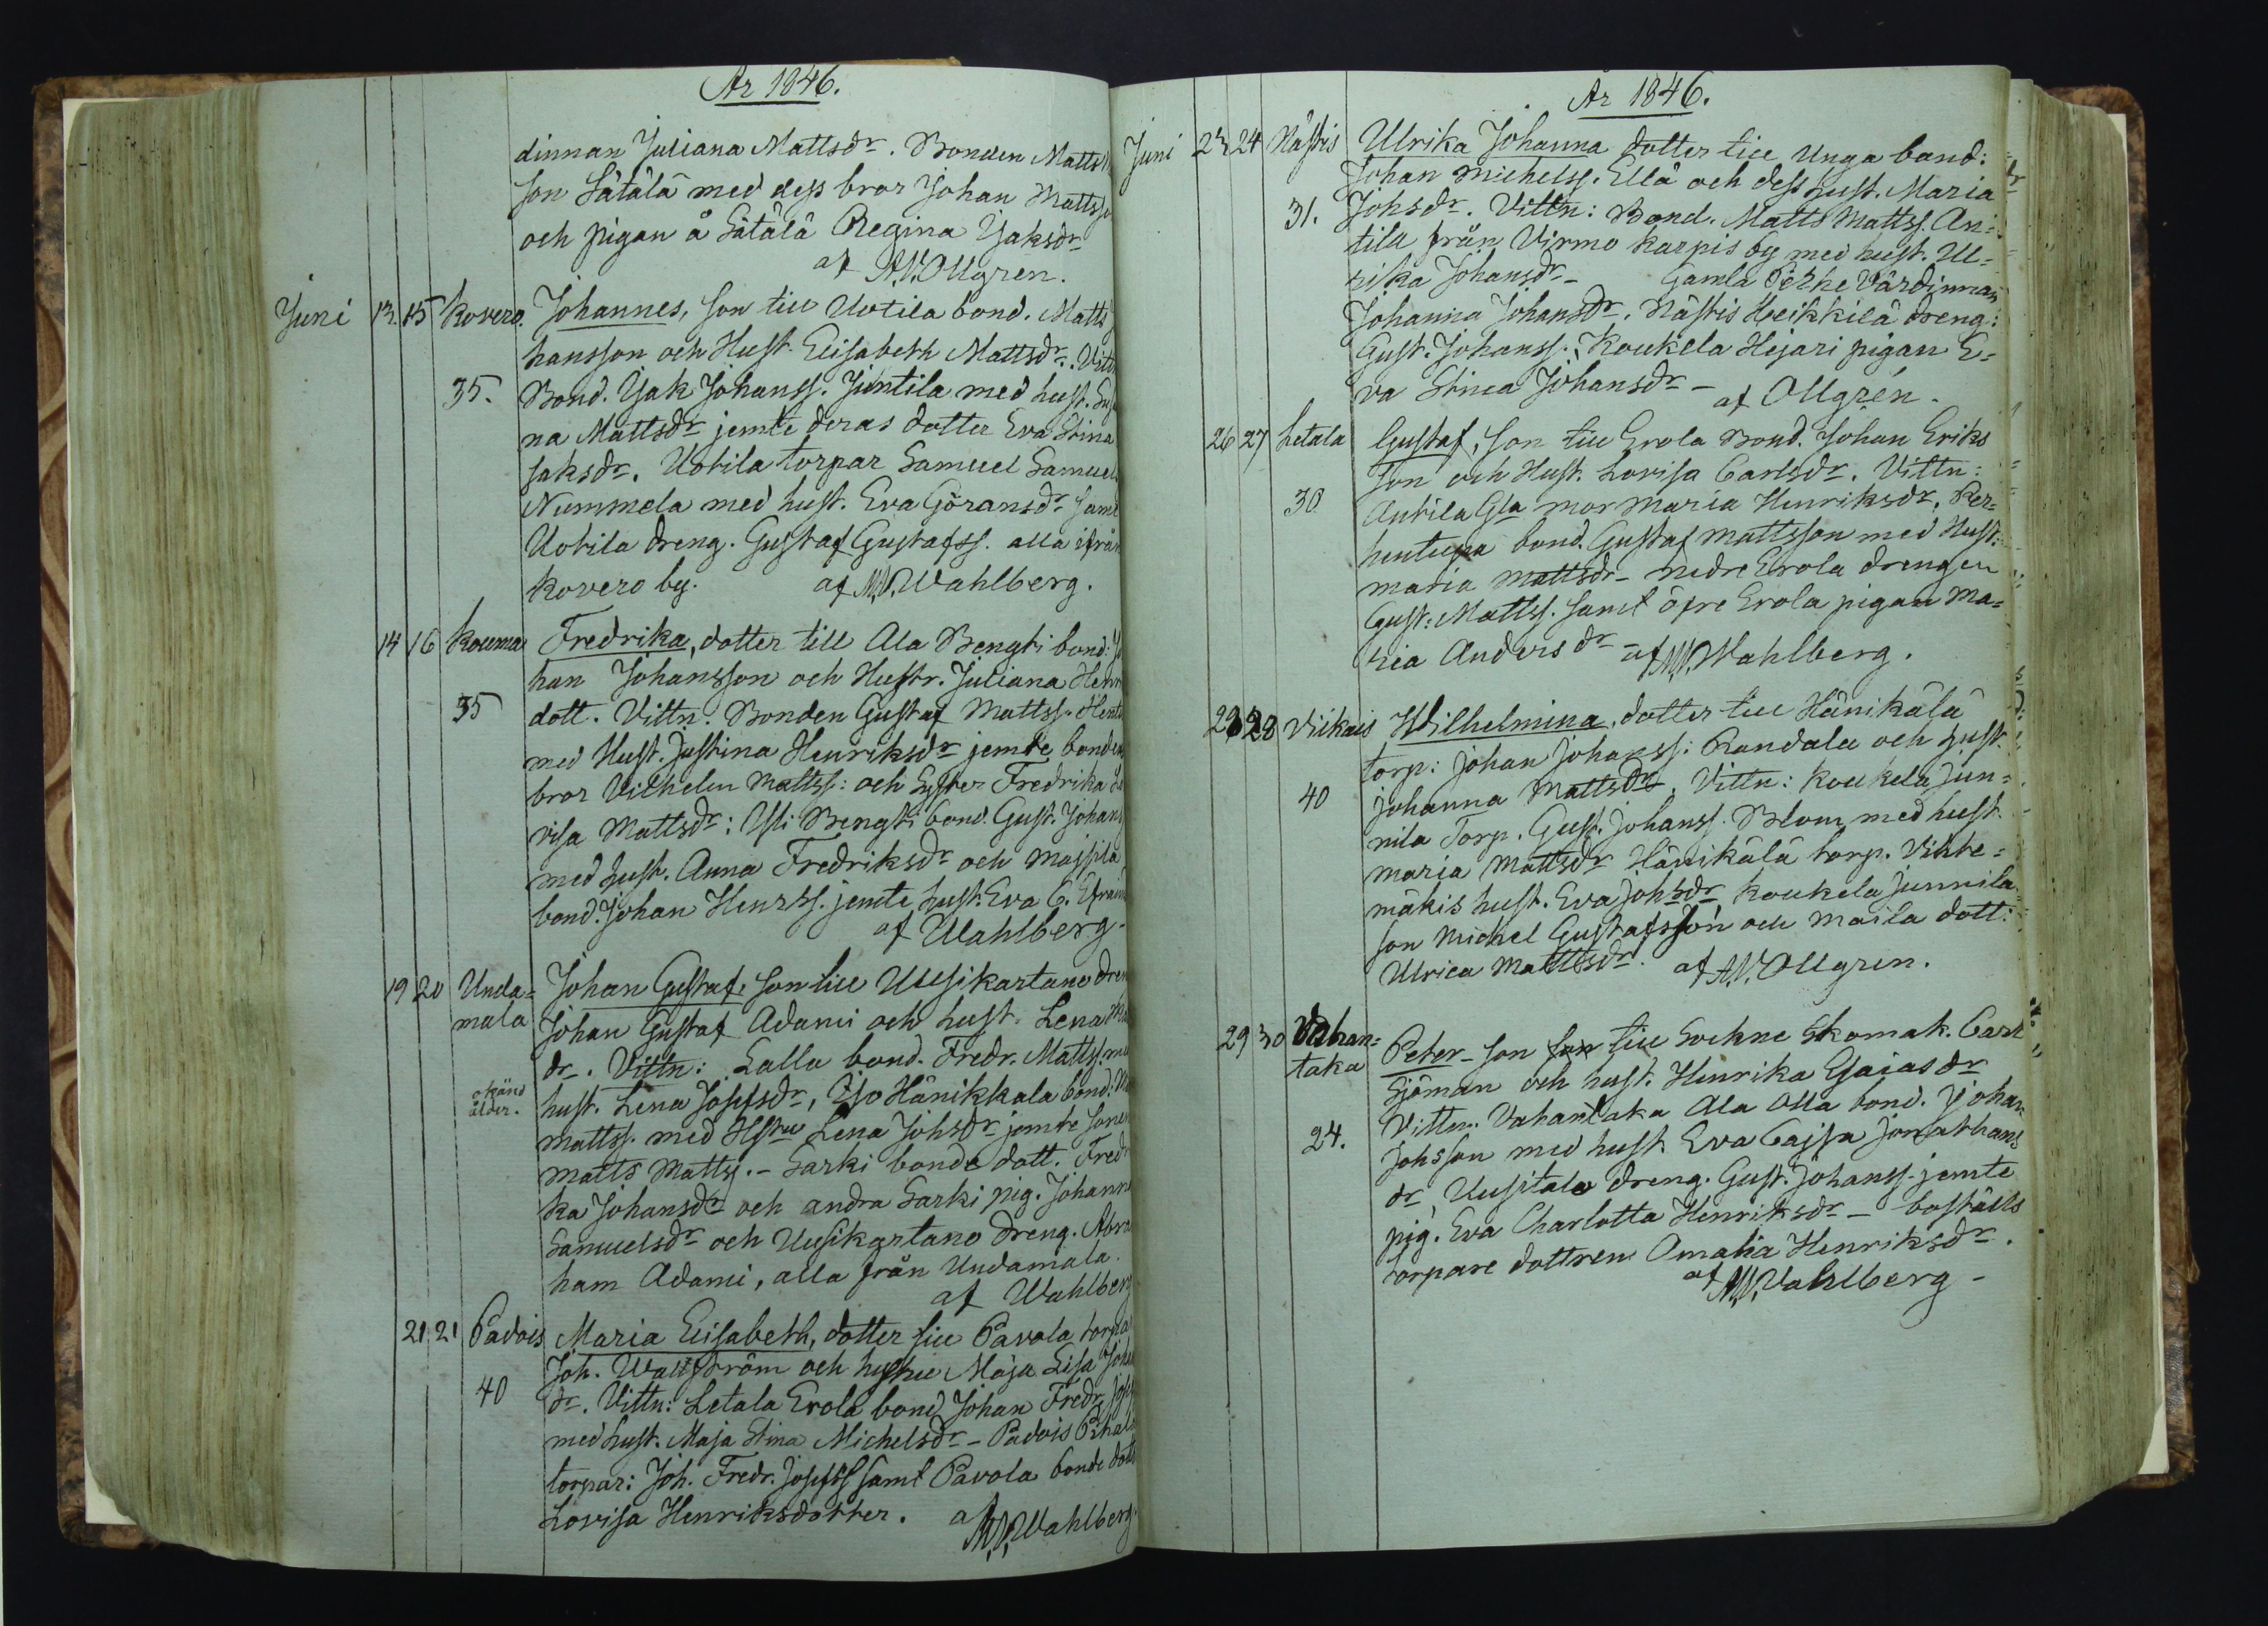 År 1846.
dinnan Juliana Mattsdr. Bonden Matts
son Sätälä med dess bror Johan Mattss
och pigan å Sätälä Regina Isaksdr
af A.V. Ollgren.
Juni 13 15 Kovero. Johannes, son till Uotila bond. Matts
hansson och Hust. Elisabeth Mattsdr. Vittn
35. Bond. Isak Johanss. Juntila med hust. Su
na Mattsdr jemte deras dotter Eva Stina
saksdr. Uotila torpar Samuel Samuels
Nummela med hust. Eva Göransdr samt
Uotila dreng. Gustaf Gustafss. alla ifrån
Kovero by. af M.V. Wahlberg.
14 16 Kouma Fredrika, dotter till Ala Bengti bond: Jo
han Johansson och Hustr. Juliana Henr
35 dott. Vittn. Bonden Gustaf Mattss. Hent
med Hust. Justina Henriksdr jemte bonden
bror Vilhelm Mattss: och Syster Fredrika Lo
visa Mattsdr: Yli Bengti bond. Gust. Johans
med hust. Anna Fredriksdr och Majsila
bond. Johan Henrss. jemte hust: Eva C. Efraim
af Wahlberg.
19 20 Unda= Johan Gustaf, son till Uusikartano dren
mala Johan Gustaf Adami och hust. Lena
dr. Vittn: Lalla bond. Fredr. Mattss. me
okänd ålder. hust. Lena Josefsdr, Iso Hänikkala bond:
Mattss. med Hstru Lena Johsdr jemte sone
Matts Mattss. - Sarki bonde dott. Fred
ka Johansdr och andra Sarki pig. Johann
Samuelsdr och Uusikartano dreng. Abra
ham Adami, alla från Undamala.
af Wahlberg
21 21 Padois Maria Elisabeth, dotter till Pavola torpa
Joh. Wallström och hustru Maja Lisa Joha
40 dr. Vittn: Letala Erola bond Johan Fredr. Josefs
med hust. Maja Stina Michelsdr - Padois
torpar: Joh. Fredr. Josefss samt Pavola bonde dott
Lovisa Henriksdotter. af M.V. Wahlberg.
År 1846.
Juni 23 24 Nästis Ulrika Johanna dotter till Unga bond:
Johan Michelss. Ellä och dess hust. Maria
31. Johsdr. Vittn: Bond. Matts Mattss. An=
tila från Virmo Karpis by med hust. Ul=
rika Johansdr - Gamla Perhe Värdinnan
Johanna Johansdr. Nästis Heikkilä dreng:
Gust. Johanss. Koukela Hejari pigan E=
va Stina Johansdr - af Ollgrén.
26 27 Letala Gustaf, son till Erola Bond. Johan Eriks
son och Hust. Lovisa Carlsdr. Vittn:
30 Antila Gla mor Maria Henriksdr, Per=
bond. Gustaf Mattsson med Hust:
Maria Mattsdr - Nedre Erola drengen
Gust: Mattss. samt öfre Erola pigan Ma=
ria Andersdr - af M.V. Wahlberg.
28 Viikais Wilhelmina, dotter till Hänikälä
torp: Johan Johanss: Randala och hust.
40 Johanna Mattsdr. Vittn: Koukela Jun=
nila Torp. Gust. Johanss. Blom med hust.
Maria Mattsdr Hänikälä torp. Vihte=
mäkis hust. Eva Johsdr Koukela Junnila
son Michel Gustafsson och Maila dott:
Ulrica Mattsdr. af A.V. Ollgren.
29 30 Vahan= Peter - son till Sochne Skomak. Carl
taka Sjöman och hust. Henrika Esaiasdr
Vittn. Vahantaka Ala Olla bond. Johan
24. Johsson med hust. Eva Cajsa Jonathans
dr Uusitalo dreng. Gust. Johanss. jemte
pig. Eva Charlotta Henriksdr - boställs
torpare dottren Amalia Henriksdr.
af M.V. Wahlberg -